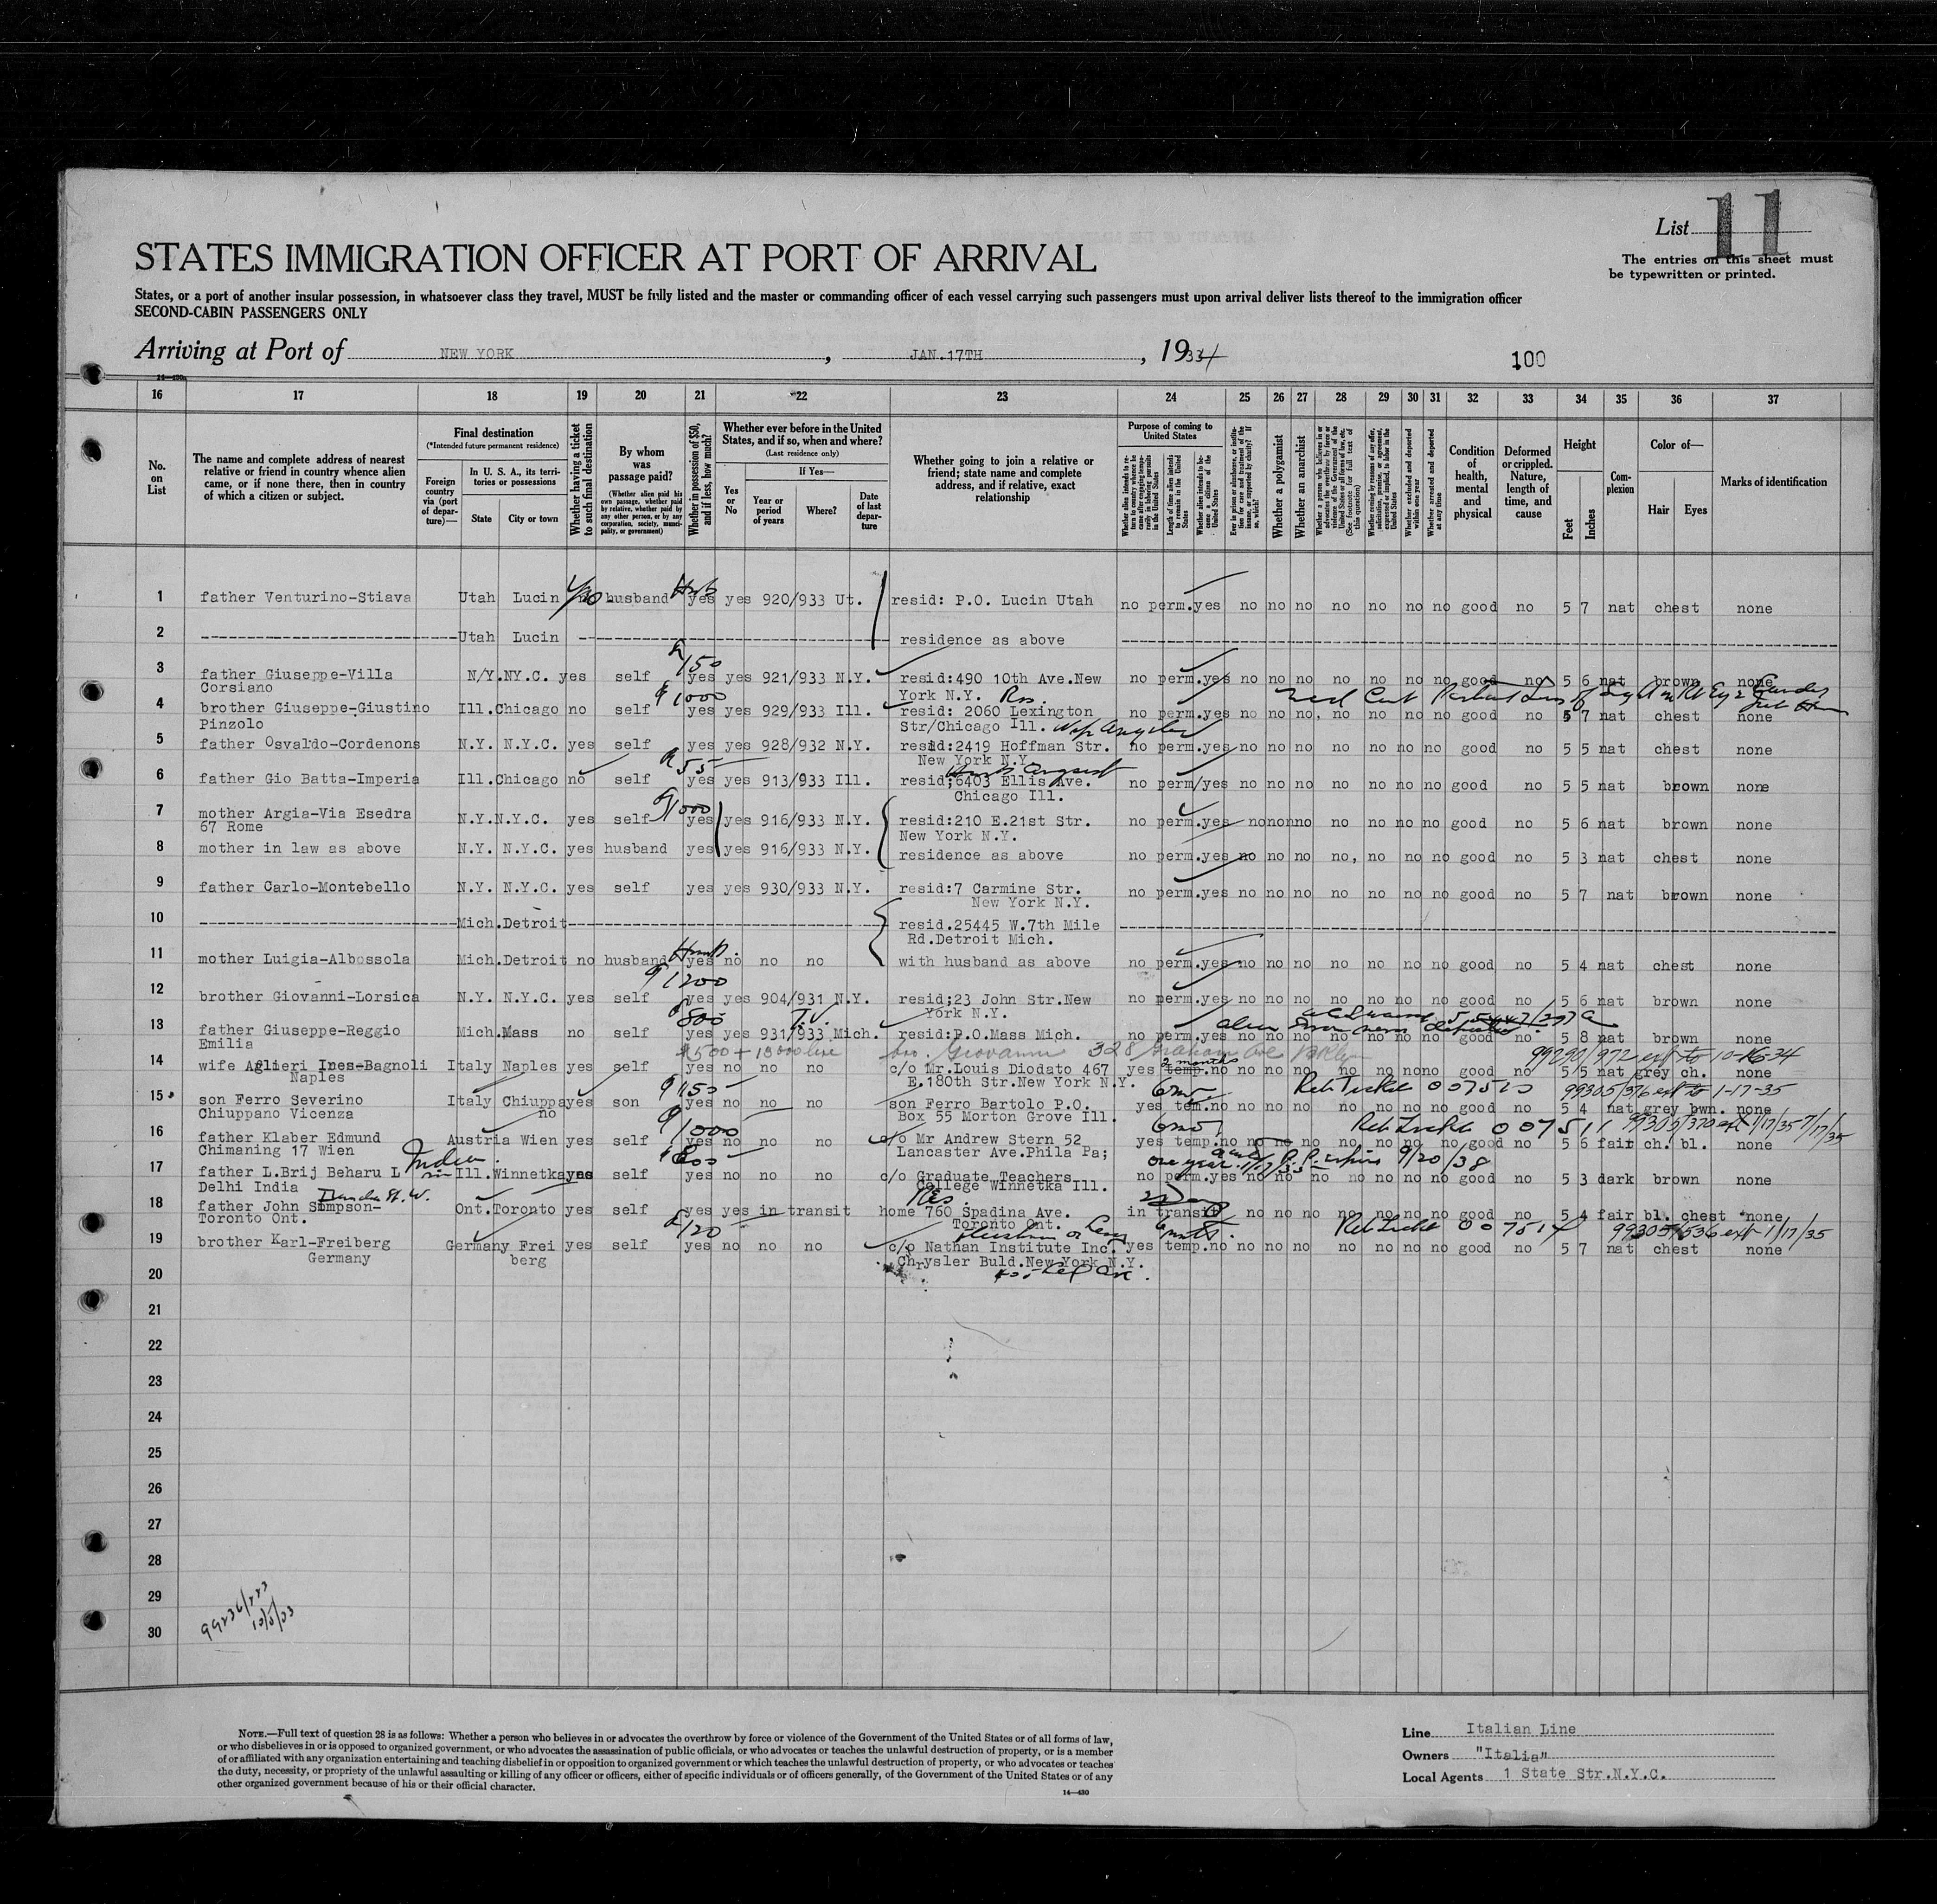 List 11
The entries on this sheet must
be typewritten or printed.
STATES IMMIGRATION OFFICER AT PORT OF ARRIVAL
States, or a port of another insular possession, in whatsoever class they travel, MUST be fully listed and the master or commanding officer of each vessel carrying such passengers must upon arrival deliver lists thereof to the immigration officer
SECOND-CABIN PASSENGERS ONLY
Arriving at Port of NEW YORK, JAN.17TH, 1934
100
16 17 18 19 20 21 22 23 24 25 26 27 28 29 30 31 32 33 34 35 36 37
No. on List
The name and complete address of nearest relative or friend in country whence alien came, or if none there, then in country of which a citizen or subject.
Final destination
(*Intended future permanent residence)
Foreign country via (port of departure)—
In U. S. A., its territories or possessions
State
City or town
Whether having a ticket to such final destination
By whom was passage paid?
(Whether alien paid his own passage, whether paid by relative, whether paid by any other person, or by any corporation, society, municipality, or government)
Whether in possession of $50, and if less, how much?
Whether ever before in the United States, and if so, when and where?
(Last residence only)
Yes or No
If Yes—
Year or period of years
Where?
Date of last departure
Whether going to join a relative or friend; state name and complete address, and if relative, exact relationship
Purpose of coming to United States
Length of time alien intends to remain in the United States
Whether alien intends to become a citizen of the United States
Whether a polygamist
Whether an anarchist
Whether excluded and deported within one year
Whether arrested and deported at any time
Condition of health, mental and physical
Deformed or crippled. Nature, length of time, and cause
Height
Feet
Inches
Complexion
Color of—
Hair
Eyes
Marks of identification
1 father Venturino-Stiava Utah Lucin husband yes yes 920/933 Ut. resid: P.O. Lucin Utah no perm.yes no no no no no no no good no 5 7 nat chest none
2 Utah Lucin residence as above
$150
3 father Giuseppe-Villa N/Y.NY.C. yes self yes yes 921/933 N.Y. resid:490 10th Ave.New no perm.yes no no no no no no no good no 5 6 nat brown none
Corsiano York N.Y.
$1000
4 brother Giuseppe-Giustino Ill.Chicago no self yes yes 929/933 Ill. resid: 2060 Lexington no perm.yes no no no. no no no no good no 5 7 nat chest none
Pinzolo Str/Chicago Ill.
5 father Osvaldo-Cordenons N.Y. N.Y.C. yes self yes yes 928/932 N.Y. resid:2419 Hoffman Str. no perm.yes no no no no no no no good no 5 5 nat chest none
New York N.Y.
$55
6 father Gio Batta-Imperia Ill.Chicago no self yes yes 913/933 Ill. resid;6403 Ellis Ave. no perm/yes no no no no no no no good no 5 5 nat brown none
Chicago Ill.
$1000
7 mother Argia-Via Esedra N.Y.N.Y.C. yes self yes yes 916/933 N.Y. resid:210 E.21st Str. no perm.yes no no no no no no no good no 5 6 nat brown none
67 Rome New York N.Y.
8 mother in law as above N.Y. N.Y.C. yes husband yes yes 916/933 N.Y. residence as above no perm.yes no no no no, no no no good no 5 3 nat chest none
9 father Carlo-Montebello N.Y. N.Y.C. yes self yes yes 930/933 N.Y. resid:7 Carmine Str. no perm.yes no no no no no no no good no 5 7 nat brown none
New York N.Y.
10 Mich.Detroit resid.25445 W.7th Mile
Rd.Detroit Mich.
11 mother Luigia-Albossola Mich.Detroit no husband yes no no no with husband as above no perm.yes no no no no no no no good no 5 4 nat chest none
$1200
12 brother Giovanni-Lorsica N.Y. N.Y.C. yes self yes yes 904/931 N.Y. resid;23 John Str.New no perm.yes no no no no no no no good no 5 6 nat brown none
York N.Y.
$800
13 father Giuseppe-Reggio Mich.Mass no self yes yes 931/933 Mich. resid:P.O.Mass Mich. no perm.yes no no no no no no no good no 5 8 nat brown none
Emilia
bro. Giovanni 328 Graham Ave Bklyn
99290/972 ext to 10-16-34
14 wife Aglieri Ines-Bagnoli Italy Naples yes self yes no no no c/o Mr.Louis Diodato 467 yes temp. 2 months no no no no no no no no good no 5 5 nat grey ch. none
Naples E.180th Str.New York N.Y.
$150 6 mos. 99305/376 ext to 1-17-35
15 son Ferro Severino Italy Chiuppano yes son yes no no no son Ferro Bartolo P.O. yes tem.no no no no no no no no good no 5 4 nat grey bwn. none
Chiuppano Vicenza Box 55 Morton Grove Ill.
$1000 6 mos. 007511 99305/370 ext 1/17/35-7/17/35
16 father Klaber Edmund Austria Wien yes self yes no no no c/o Mr Andrew Stern 52 yes temp.no no no no no no no no good no 5 6 fair ch. bl. none
Chimaning 17 Wien Lancaster Ave.Phila Pa;
India $800 one year
17 father L.Brij Beharu L Ill.Winnetka yes yes no no no c/o Graduate Teachers no perm.yes no no no no no no no good no 5 3 dark brown none
Delhi India College Winnetka Ill.
2 Days
18 father John Simpson- Ont.Toronto yes self yes yes in transit home 760 Spadina Ave. in transit no no no no no no no good no 5 4 fair bl. chest none
Toronto Ont. Toronto Ont.
$120 007514 99305/636 ext 1/17/35
19 brother Karl-Freiberg Germany Frei yes self yes no no no c/o Nathan Institute Inc. yes temp.no no no no no no no no good no 5 7 nat chest none
Germany berg Chrysler Buld.New York N.Y.
20
21
22
23
24
25
26
27
28
29
30
NOTE.—Full text of question 28 is as follows: Whether a person who believes in or advocates the overthrow by force or violence of the Government of the United States or of all forms of law,
or who disbelieves in or is opposed to organized government, or who advocates the assassination of public officials, or who advocates or teaches the unlawful destruction of property, or is a member
of or affiliated with any organization entertaining and teaching disbelief in or opposition to organized government or which teaches the unlawful destruction of property, or who advocates or teaches
the duty, necessity, or propriety of the unlawful assaulting or killing of any officer or officers, either of specific individuals or of officers generally, of the Government of the United States or of any
other organized government because of his or their official character.
14—430
Line Italian Line
Owners "Italia"
Local Agents 1 State Str.N.Y.C.